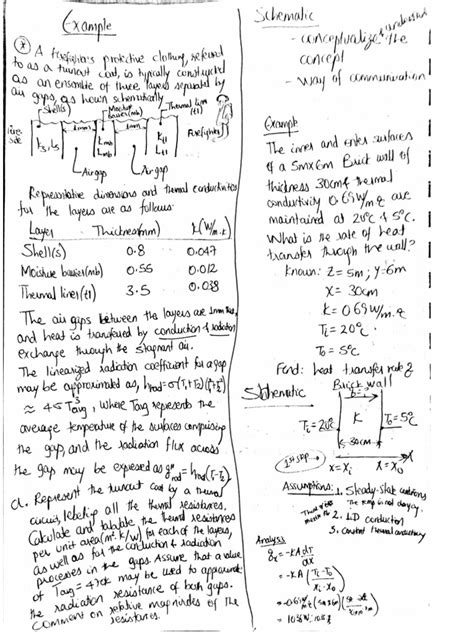 Example
A firefighter's protective clothing, referred
to as a turnout coat, is typically constructed
as an ensemble of three layers separated by
air gaps, as shown schematically
Shell(s)
Moisture
barrier(mb)
Thermal liner
(tl)
Fire side
1mm
1mm
ks, Ls
kmb
Lmb
ktl
Ltl
Firefighter
Air gap
Air gap
Representative dimensions and thermal conductivities
for the layers are as follows:
Layer Thickness(mm) k(W/m·K)
Shell(s) 0.8 0.047
Moisture barrier(mb) 0.55 0.012
Thermal liner(tl) 3.5 0.038
The air gaps between the layers are 1mm thick
and heat is transferred by conduction & radiation
exchange through the stagnant air.
The linearized radiation coefficient for a gap
may be approximated as, hrad=σ(T1+T2)(T1²+T2²)
≈ 4σT³avg, where Tavg represents the
average temperature of the surfaces comprising
the gap, and the radiation flux across
the gap may be expressed as q"rad = hrad(T1-T2)
a. Represent the turnout coat by a thermal
circuit, labeling all the thermal resistances.
Calculate and tabulate the thermal resistances
per unit area(m².K/W) for each of the layers,
as well as for the conduction & radiation
processes in the gaps. Assume that a value
of Tavg = 470K may be used to approximate
the radiation resistance of both gaps.
Comment on relative magnitudes of the
resistances.
Schematic
- conceptualize & understand the
concept
- way of communication
Example
The inner and outer surfaces
of a 5mx6m Brick wall of
thickness 30cm & thermal
conductivity 0.69W/m.°C are
maintained at 20°C & 5°C.
What is the rate of heat
transfer through the wall?
Known: Z = 5m; y=6m
x = 30cm
K = 0.69W/m.°C
Ti = 20°C
To = 5°C
Find: heat transfer rate
Schematic
Brick wall
Ti = 20°C
K
To = 5°C
30cm
x=xi
x=xo
Assumptions: 1. Steady-state conditions
2. 1.D conduction
3. constant thermal conductivity
Analysis
qx = -KA dT/dx
= -KA (Ti-To / xi-xo)